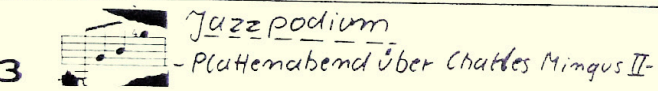 Jazzpodium
3 - Plattenabend über Charles Mingus II-